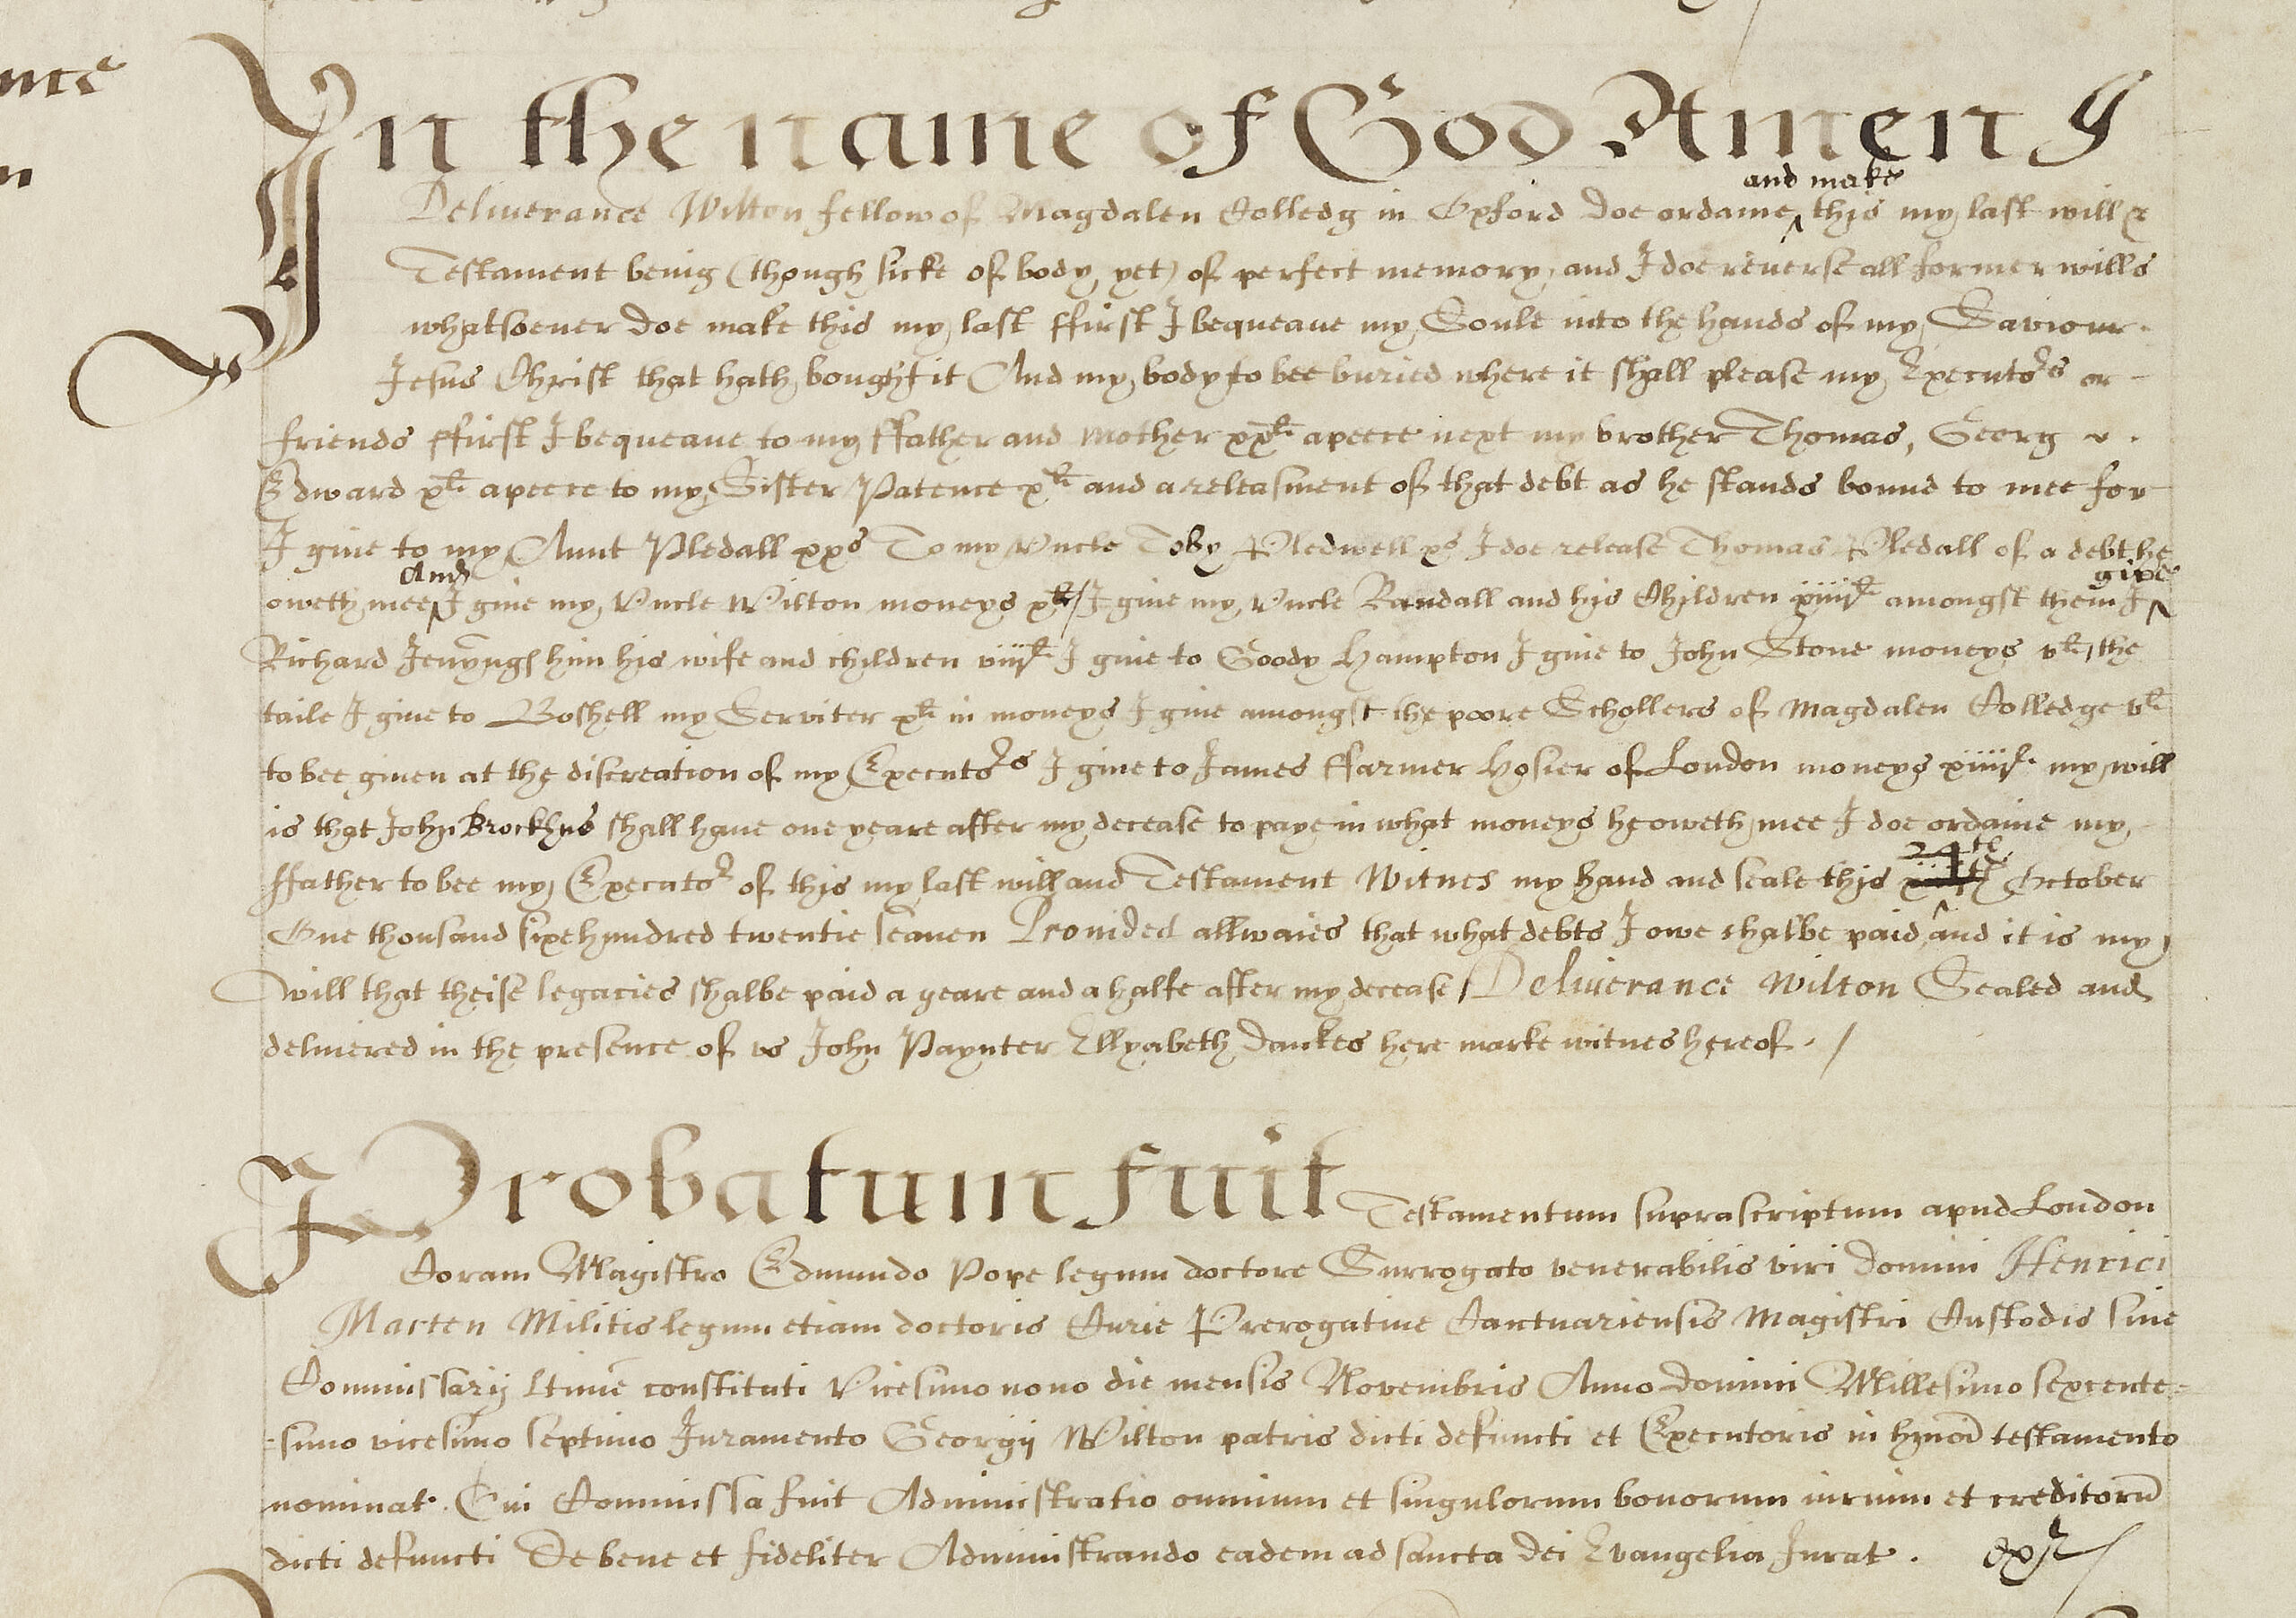 me
n
In the name of God Amen I
and make
Deliuerance Wilton fellow of Magdalen Colledg in Oxford doe ordaine ^ this my last will &
Testament being (though sicke of body yet) of perfect memory, and I doe reuerse all former wills
whatsoeuer doe make this my last ffirst I bequeaue my Soule into the hands of my Saviour.
Jesus Christ that hath bought it And my body to bee buried where it shall please my Executors or
friends ffirst I bequeaue to my ffather and mother xxli apeece next my brother Thomas, Georg &.
Edward xli apeece to my Sister Patence xli and a releasment of that debt as he stands bound to mee for
I giue to my Aunt Pledall xxs To my Vncle Toby Pledwell xs I doe release Thomas Pledall of a debt he
And
giue
oweth mee ^ I giue my Vncle Wilton moneys xli / I giue my vncle Randall and his Children xiiijli amongst them I ^
Richard Jenyngs him his wife and children viijli I giue to Goody Hampton I giue to John Stone moneys vli, the
taile I giue to Boshell my Serviter xli in moneys I giue amongst the poore Schollers of Magdalen Colledge vli
to bee giuen at the discreation of my Executors I giue to James ffarmer Hosier of London moneys xiiijli. my will
is that John Brockhus shall haue one yeare after my decease to paye in what moneys he oweth mee I doe ordaine my
24th
ffather to bee my Executor of this my last will and Testament Witnes my hand and seale this ^ October
One thousand sixe hundred twentie seauen Prouided allwaies that what debts I owe shalbe paid, and it is my
will that theise legacies shalbe paid a yeare and a halfe after my decease / Deliuerance Wilton Sealed and
deliuered in the presence of vs John Paynter Ellyabeth Dankes here marke witnes hereof. /
Probatum fuit Testamentum suprascriptum apud London
Coram Magistro Edmundo Pope legum doctore Surrogato venerabilis viri domini Henrici
Marten Militis legum etiam doctoris Curie Prerogatiue Cantuariensis Magistri Custodis siue
Commissarij ltimē constituti Vicesimo nono die mensis Novembris Anno domini Millesimo sexcente=
=simo vicesimo septimo Juramento Georgij Wilton patris dicti defuncti et Executoris in hmōi testamento
nominat. Cui Commissa fuit Administratio omnium et singulorum bonorum iurium et creditorū
dicti defuncti De bene et fideliter Administrando eadem ad sancta dei Evangelia Jurat. exr /